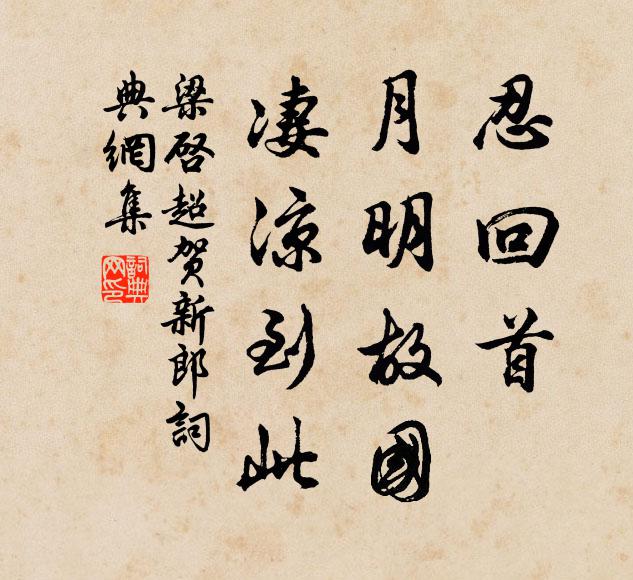 忍回首
月明故國
凄涼到此
梁啓超賀新郎詞
典網集
詞典網印